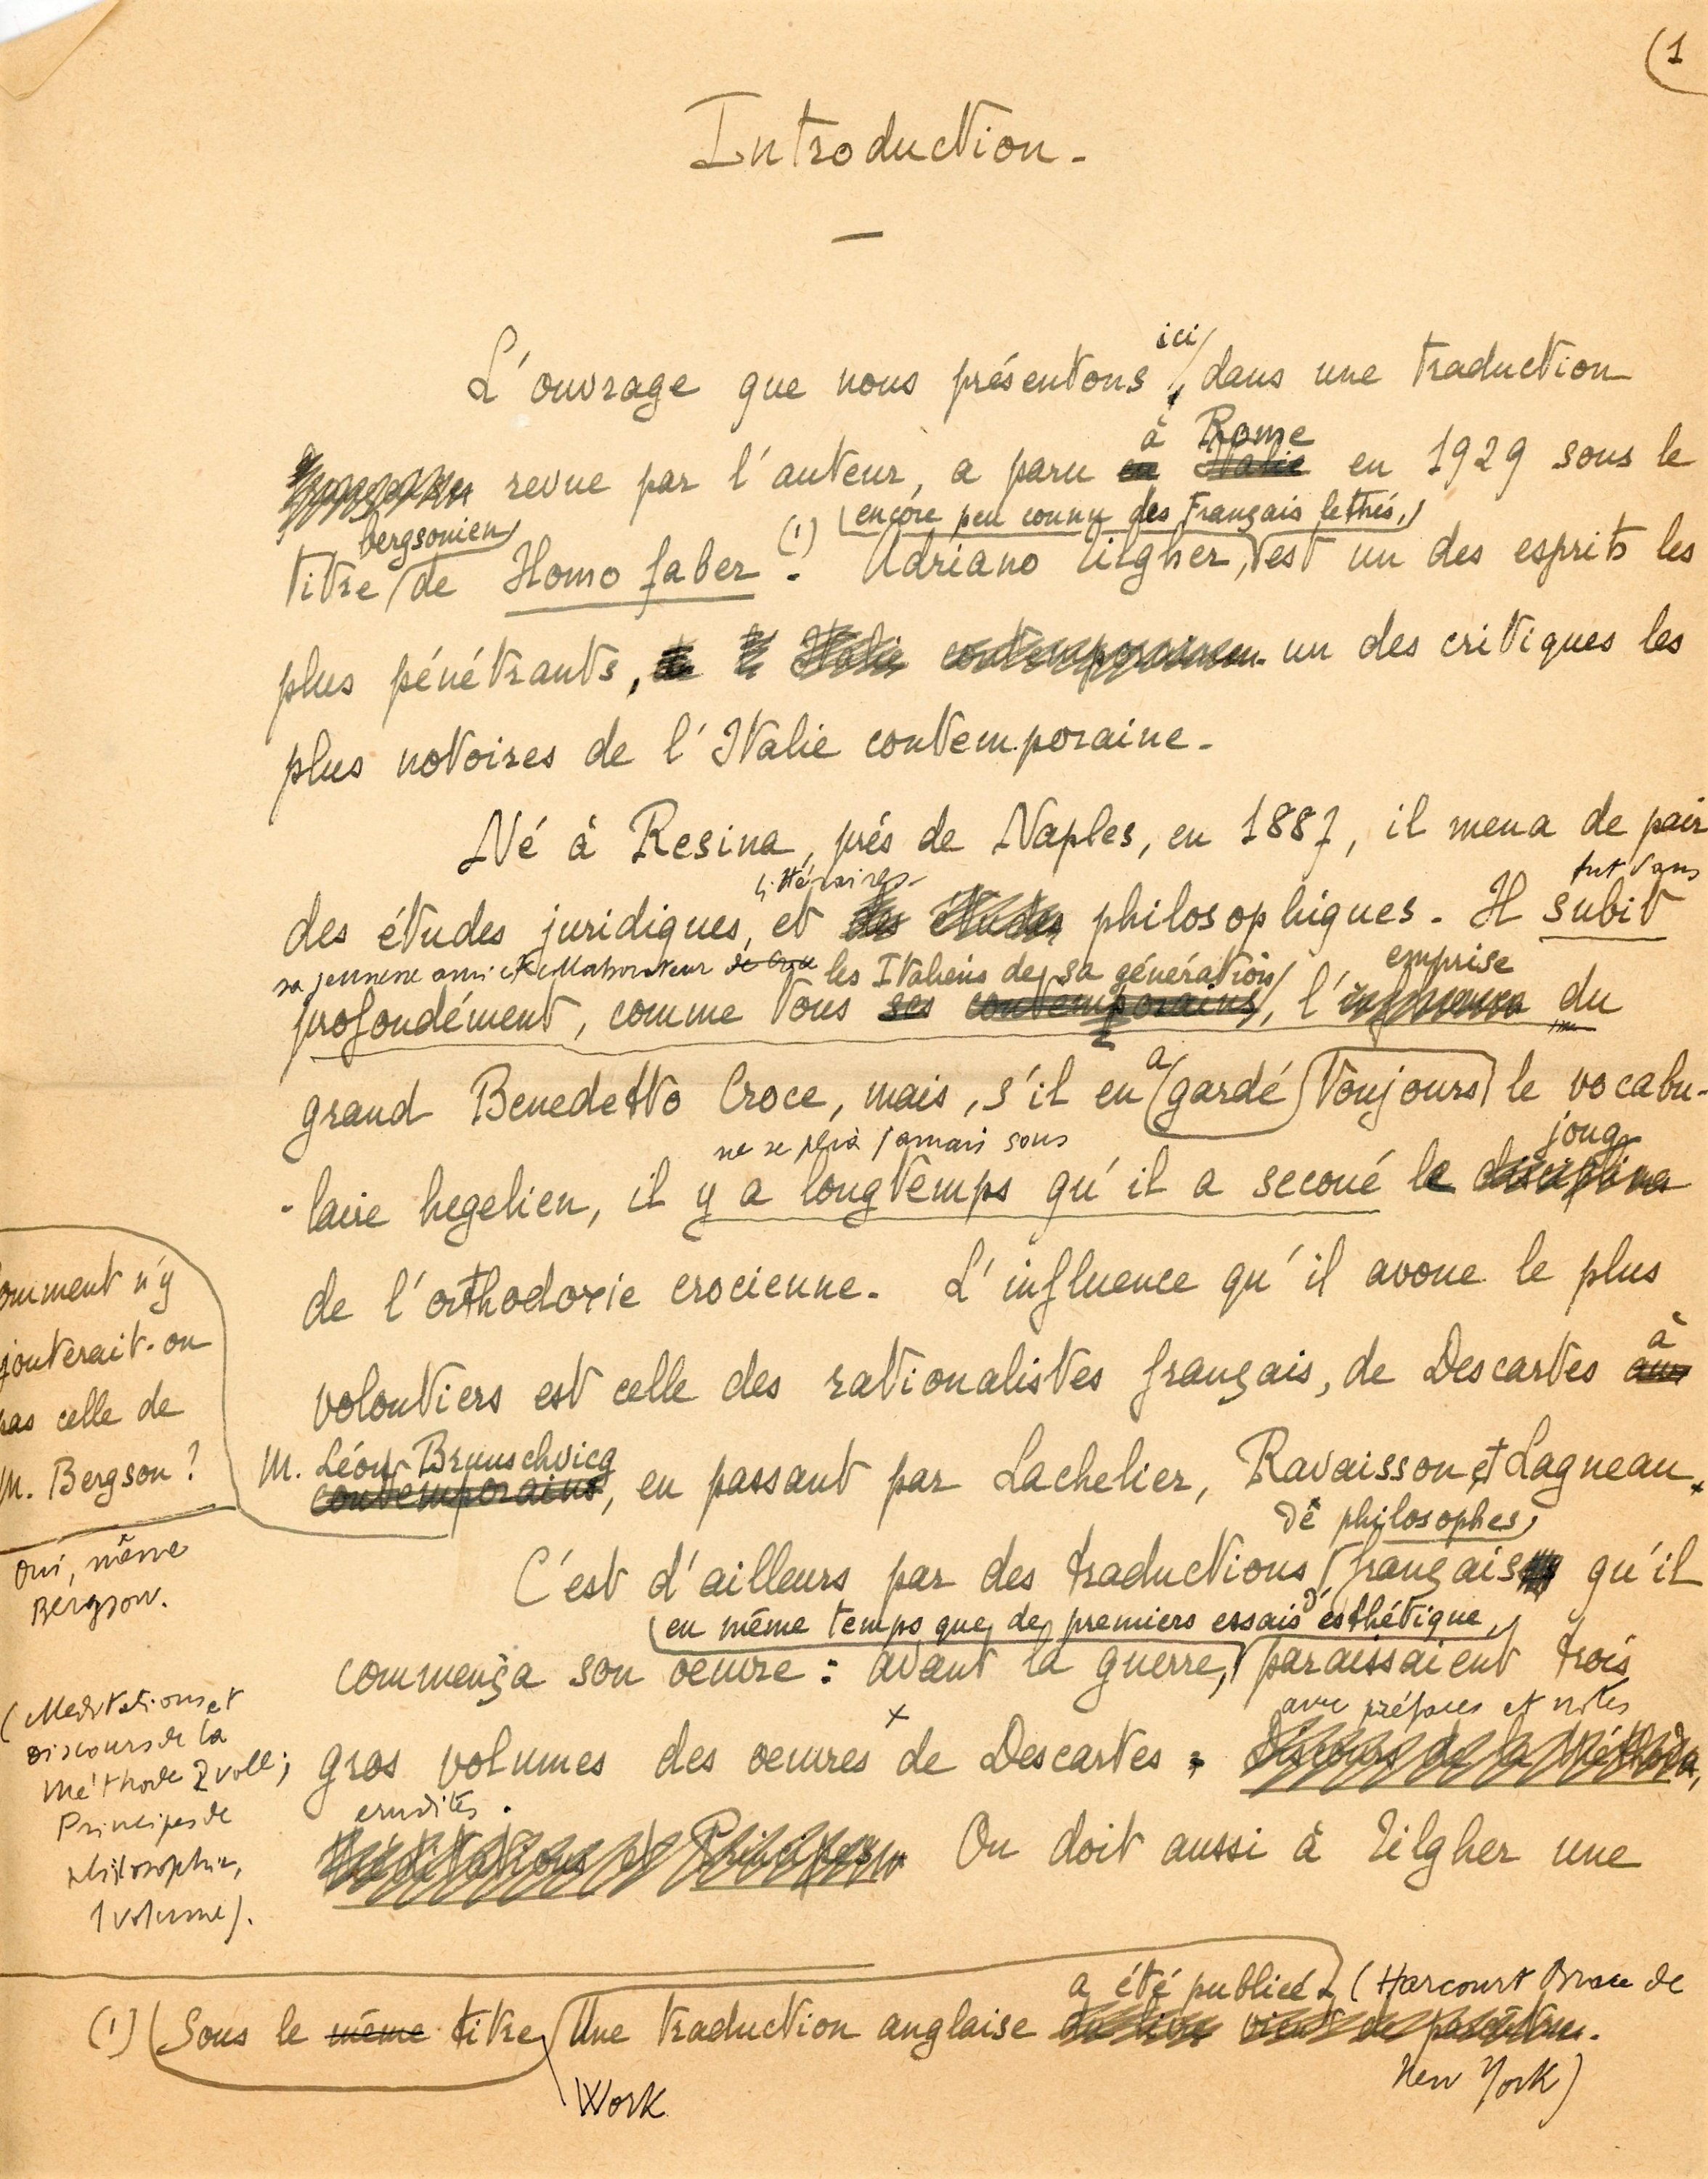 (1
Introduction.
ici
L'ouvrage que nous présentons, dans une traduction
à Rome
revue par l'auteur, a paru en Italie en 1929 sous le
bergsonien (1) encore peu connu des Français lettrés,
titre de Homo faber. Adriano Tilgher, est un des esprits les
plus pénétrants, de l'Italie contemporaine un des critiques les
plus notoires de l'Italie contemporaine.
Né à Resina, près de Naples, en 1887, il mena de pair
littéraires fut dans
des études juridiques, et des études philosophiques. Il subit
sa jeunesse ami et collaborateur de Croce les Italiens de sa génération emprise
profondément, comme tous ses contemporains, l'influence du
a
grand Benedetto Croce, mais, s'il en gardé toujours le vocabu-
ne se plia jamais sous joug
-laire hegelien, il y a longtemps qu'il a secoué le discipline
de l'orthodoxie crocienne. L'influence qu'il avoue le plus
à
volontiers est celle des rationalistes français, de Descartes aux
M. Léon Brunschvicg
contemporains, en passant par Lachelier, Ravaisson et Lagneau.
de philosophes
C'est d'ailleurs par des traductions français qu'il
en même temps que de premiers essais d'esthétique,
commença son oeuvre : avant la guerre, paraissaient trois
avec préfaces et notes
gros volumes des oeuvres de Descartes : Discours de la Méthode,
erudites.
Méditations et Principes. On doit aussi à Tilgher une
omment n'y
jouterait-on
pas celle de
M. Bergson ?
Oui, même
Bergson.
(Meditations et
Discours de la
Méthode 2 voll;
Principes de
philosophie,
1 volume).
a été publiée (Harcourt Brace de
(1) Sous le même titre Une traduction anglaise du livre vient de paraître.
Work
New York)